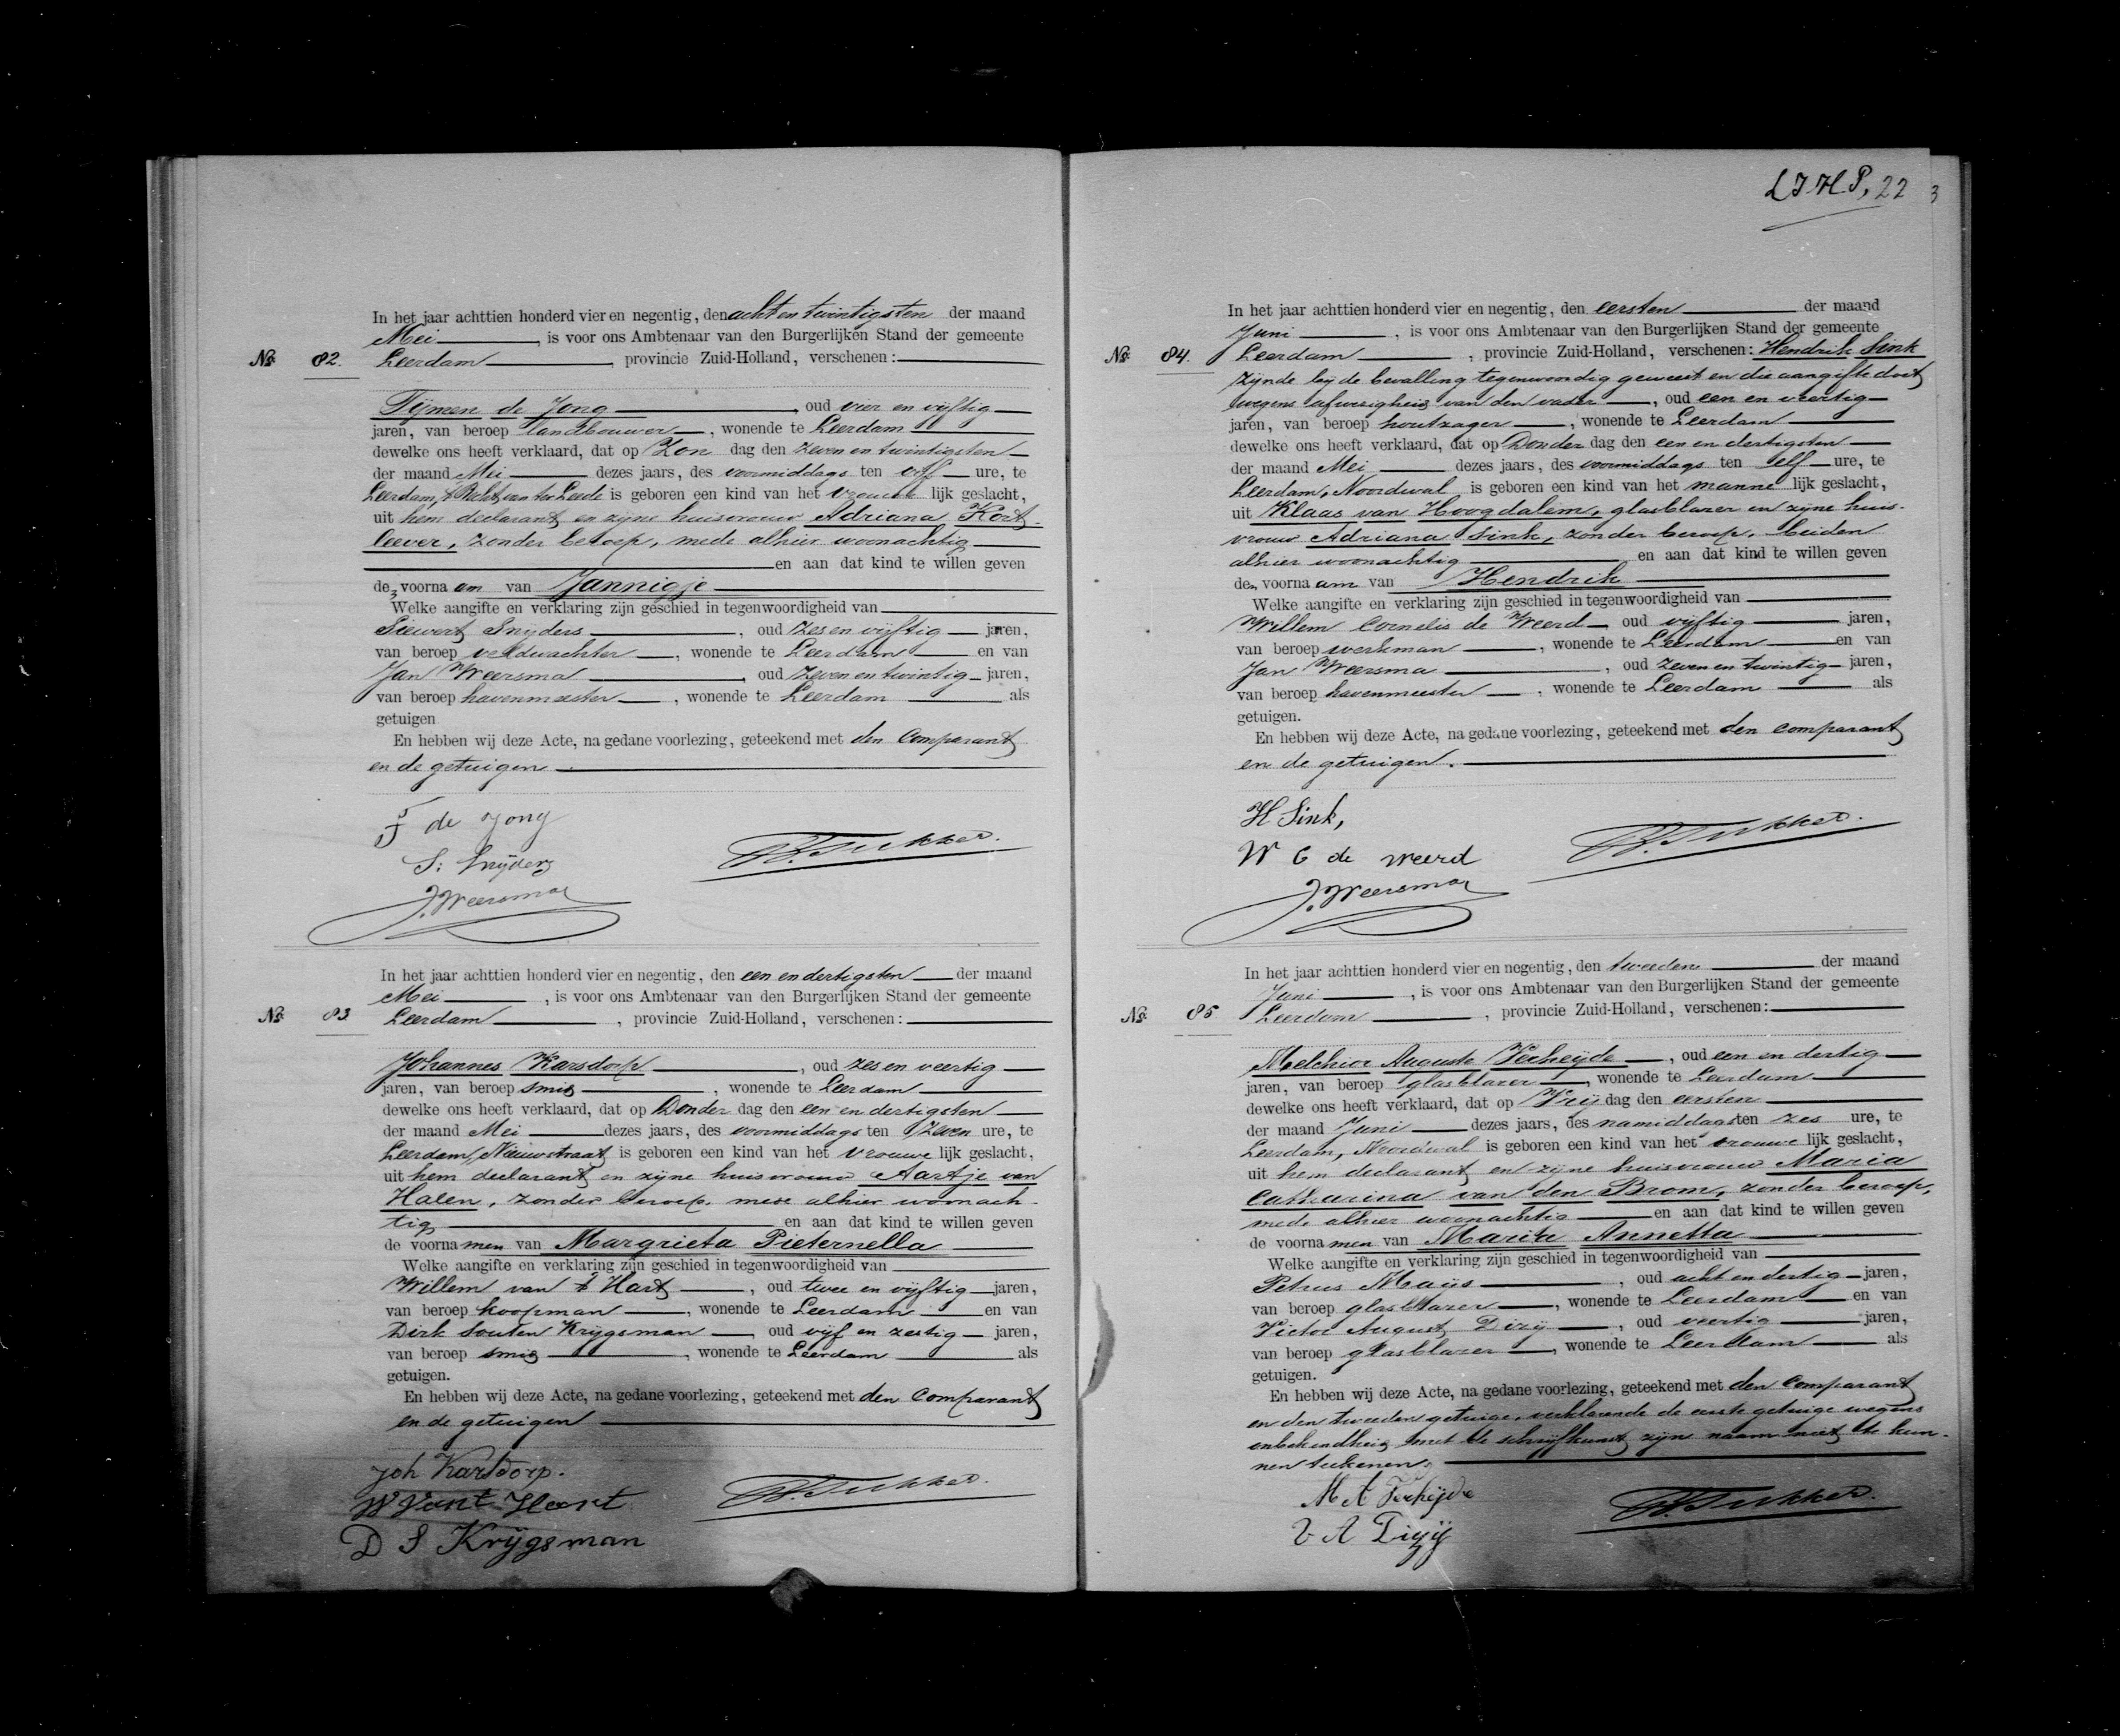 In het jaar achttien honderd vier en negentig, den acht en twintigsten der maand
Mei, is voor ons Ambtenaar van den Burgerlijken Stand der gemeente
No. 82. Leerdam, provincie Zuid-Holland, verschenen:
Tijmen de Jong, oud vier en vijftig
jaren, van beroep landbouwer, wonende te Leerdam
dewelke ons heeft verklaard, dat op Zon dag den zeven en twintigsten
der maand Mei dezes jaars, des voormiddags ten vijf ure, te
Leerdam, is geboren een kind van het vrouwe lijk geslacht,
uit hem declarant en zijne huisvrouw Adriana Kort-
leever, zonder beroep, mede alhier woonachtig
en aan dat kind te willen geven
de voorna am van Jannigje
Welke aangifte en verklaring zijn geschied in tegenwoordigheid van
Siewert Snijders, oud zes en vijftig jaren,
van beroep veldwachter, wonende te Leerdam en van
Jan Weersma, oud zeven en twintig jaren,
van beroep havenmeester, wonende te Leerdam als
getuigen
En hebben wij deze Acte, na gedane voorlezing, geteekend met den Comparant
en de getuigen
T de Jong
S. Snijders
J. Weersma
Tukker.
In het jaar achttien honderd vier en negentig, den een en dertigsten der maand
Mei, is voor ons Ambtenaar van den Burgerlijken Stand der gemeente
No. 83 Leerdam, provincie Zuid-Holland, verschenen:
Johannes Karsdorp, oud zes en veertig
jaren, van beroep smid, wonende te Leerdam
dewelke ons heeft verklaard, dat op Donder dag den een en dertigsten
der maand Mei dezes jaars, des voormiddags ten zeven ure, te
Leerdam, Nieuwstraat is geboren een kind van het vrouwe lijk geslacht,
uit hem declarant en zijne huisvrouw Aartje van
Halen, zonder beroep, mede alhier woonach-
tig en aan dat kind te willen geven
de voorna men van Margrieta Pieternella
Welke aangifte en verklaring zijn geschied in tegenwoordigheid van
Willem van 't Hart, oud twee en vijftig jaren,
van beroep koopman, wonende te Leerdam en van
Dirk Souten Krijgsman, oud vijf en zestig jaren,
van beroep smid, wonende te Leerdam als
getuigen.
En hebben wij deze Acte, na gedane voorlezing, geteekend met den Comparant
en de getuigen
Joh Karsdorp.
W van t Hart
D S Krijgsman
Tukker.
22
In het jaar achttien honderd vier en negentig, den eersten der maand
Juni, is voor ons Ambtenaar van den Burgerlijken Stand der gemeente
No. 84. Leerdam, provincie Zuid-Holland, verschenen: Hendrik Sink
zijnde bij de bevalling tegenwoordig geweest en die aangifte doet
wegens afwezigheid van den vader, oud een en veertig
jaren, van beroep houtzager, wonende te Leerdam
dewelke ons heeft verklaard, dat op Donder dag den een en dertigsten
der maand Mei dezes jaars, des voormiddags ten elf ure, te
Leerdam, Noordwal is geboren een kind van het manne lijk geslacht,
uit Klaas van Hoogdalem, glasblazer en zijne huis-
vrouw Adriana Sink, zonder beroep, beiden
alhier woonachtig en aan dat kind te willen geven
de voorna am van Hendrik
Welke aangifte en verklaring zijn geschied in tegenwoordigheid van
Willem Cornelis de Weerd oud vijftig jaren,
van beroep werkman, wonende te Leerdam en van
Jan Weersma, oud zeven en twintig jaren,
van beroep havenmeester, wonende te Leerdam als
getuigen.
En hebben wij deze Acte, na gedane voorlezing, geteekend met den comparant
en de getuigen.
H Sink,
W C de Weerd
J. Weersma
Tukker.
In het jaar achttien honderd vier en negentig, den tweeden der maand
Juni, is voor ons Ambtenaar van den Burgerlijken Stand der gemeente
No. 85 Leerdam, provincie Zuid-Holland, verschenen:
Melchior Auguste Verheijde, oud een en dertig
jaren, van beroep glasblazer, wonende te Leerdam
dewelke ons heeft verklaard, dat op Vrij dag den eersten
der maand Juni dezes jaars, des namiddags ten zes ure, te
Leerdam, Noordwal is geboren een kind van het vrouwe lijk geslacht,
uit hem declarant en zijne huisvrouw Maria
Catharina van den Brom, zonder beroep,
mede alhier woonachtig en aan dat kind te willen geven
de voorna men van Maria Annetta
Welke aangifte en verklaring zijn geschied in tegenwoordigheid van
Petrus Maijs, oud acht en dertig jaren,
van beroep glasblazer, wonende te Leerdam en van
Victor August, oud veertig jaren,
van beroep glasblazer, wonende te Leerdam als
getuigen.
En hebben wij deze Acte, na gedane voorlezing, geteekend met den Comparant
en den tweeden getuige, verklarende de eerste getuige wegens
onbekendheid met de schrijfkunst zijn naam niet te kun-
nen teekenen.
M A Verheijde
V A
Tukker.